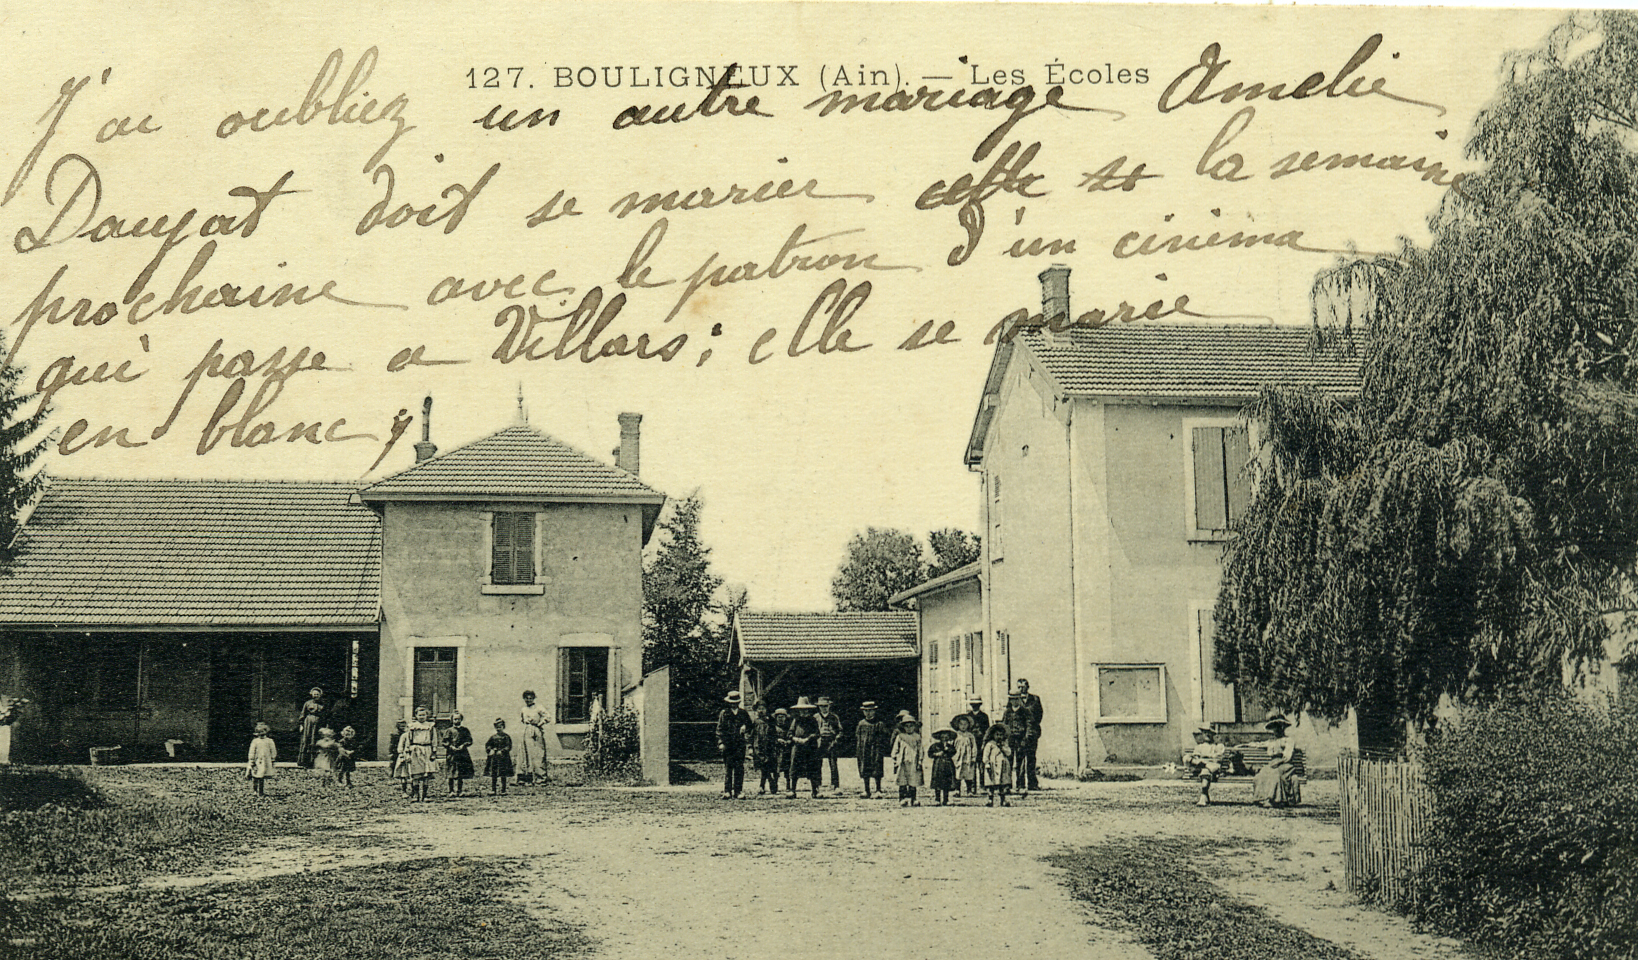 127. BOULIGNEUX (Ain). — Les Écoles
J'ai oubliez un autre mariage Amelie
Daujat doit se marier cette st la semaine
prochaine avec le patron d'un cinéma
qui passe a Villars; elle se marie
en blanc;